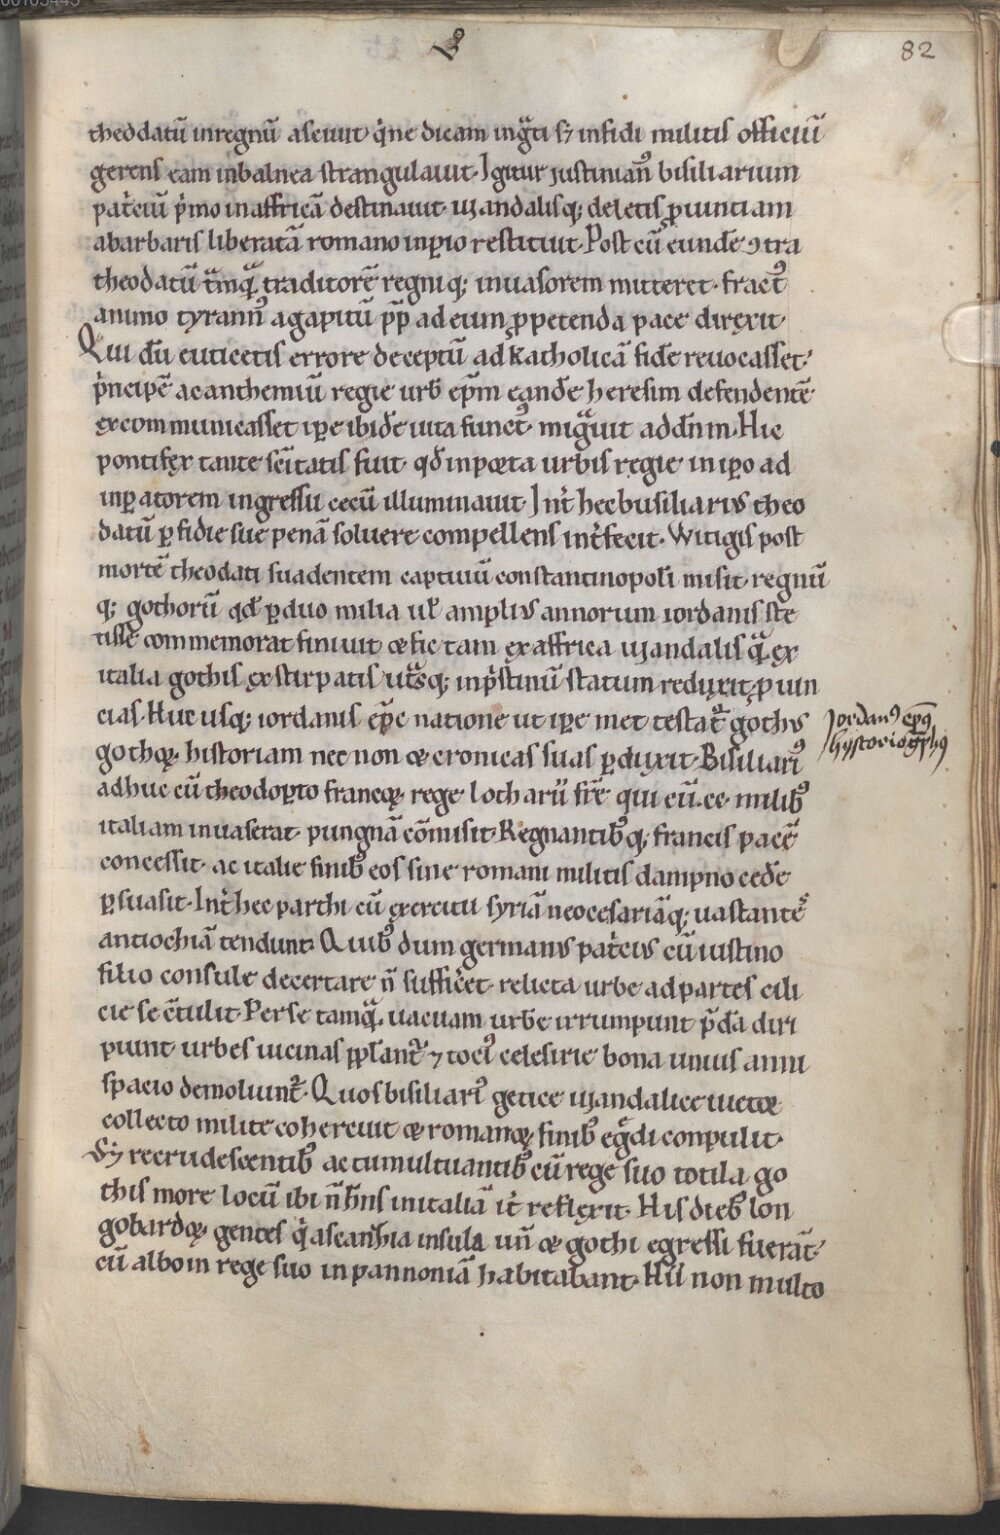 82
theodatū inregnū asciuit qͥne dicam ingᷓti sꝫ infidi militis officiū
gerens eam inbalnea strangulauit· Igitur iustinianꝰ bisiliarium
patͥciū pͥmo inaffricā destinauit· uuandalisq; deletis ꝓuintiam
abarbaris liberatā romano inꝑio restituit· Post cū eundē ꝯtra
theodatū tāmqᷓ traditorē regniq; inuasorem mitteret· fractꝰ
animo tyrannꝰ agapitū pp̄ adeum ꝓpetenda pace direxit·
Qui dū euticetis errore deceptū ad katholicā fidē reuocasset·
pͥncipē acanthemiū regie urb̄ ep̄m eandē heresim defendentē
excommunicasset ip̄e ibidē uita functꝰ· migᷓuit addn̄m· Hic
pontifex tante sc̄itatis fuit· qd̄ inporta urbis regie· in ip̄o ad
inꝑatorem ingressu cecū illuminauit· Int̄ hec busiliarius theo
datū ꝑfidie sue penā soluere compellens int̄fecit· Witigis post
mortē theodati suadentem captiuū constantinopolī misit· regnū
q; gothorū qd̄ ꝑduo milia ul̄ amplius annorum iordanis ste
tisse commemorat finiuit & sic tam ex affrica uuandalis qᷓ ex
italia gothis exstirpatis utrᷓsq; inpͥstinū statum reduxit ꝓuin
cias· Huc usq; iordanis ep̄c natione ut ip̄e met testat᷑ gothus
gothoꝝ· historiam nec non & cronicas suas ꝑduxit· Bisiliariꝰ
Iordanꝰ ep̄ꝯ
hystoriogᷓphꝰ
adhuc cū theodoꝑto francoꝝ rege· lotharii fr̄e· qui cū· cc· milibꝰ
italiam inuaserat· pungnā cōmisit· Regnantibꝰq; francis pacē
concessit· ac italie finibꝰ eos sine romani militis dampno cedē
ꝑsuasit· Int̄ hec parthi cū exercitu syriā neocesariāq; uastantē
antiochiā tendunt· Quibꝰ dum germanus patͥcius cū iustino
filio consule decertare n̄ sufficͥet· relicta urbe ad partes cili
cie se c̄tulit· Perse tamqᷓ uacuam urbē irrumpunt p̄dā diri
piunt urbes uicinas pp̄lant᷑ ⁊ tociꝰ celesirie bona unius anni
spacio demoliunt᷑· Quos bisiliariꝰ getice uuandalice uictor
collecto milite cohercuit & romanoꝝ finibꝰ egᷓdi conpulit·
Sꝫ recrudescentibꝰ ac tumultuantibꝰ cū rege suo totila go
this more locū ibi n̄ hn̄s initaliā it̄ reflexit· His diebꝰ lon
gobardoꝝ gentes qͥ ascanthia insula un̄ & gothi egressi fuerāt·
cū alboin rege suo in pannoniā habitabant· Hii non multo